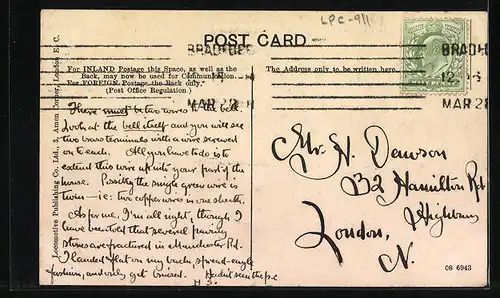 LPC-911
POST CARD
BRADFORD
12.15
MAR 28
BRADFO
MAR 28
For INLAND Postage this Space, as well as the
Back, may now be used for Communication.
For FOREIGN Postage the Back only.
(Post Office Regulation.)
The Address only to be written here.
Locomotive Publishing Co., Ltd., 3, Amen Corner, London E.C.
There must be two wires to the bell.
Look at the bell itself and you will see
two brass terminals with a wire screwed
on to each. All you have to do is to
extend this wire up into your part of the
house. Possibly the single green wire is
twin – i.e: two copper wires in one sheath.
As for me, I'm all right, though I
have been told that several paving
stones are fractured in Manchester Rd.
I landed flat on my back, spread-eagle
fashion, and only got bruised. Hadn't seen the p.c.
H
Mr. H. Dawson
32 Hamilton Rd
Highbury
London,
N.
08 6943